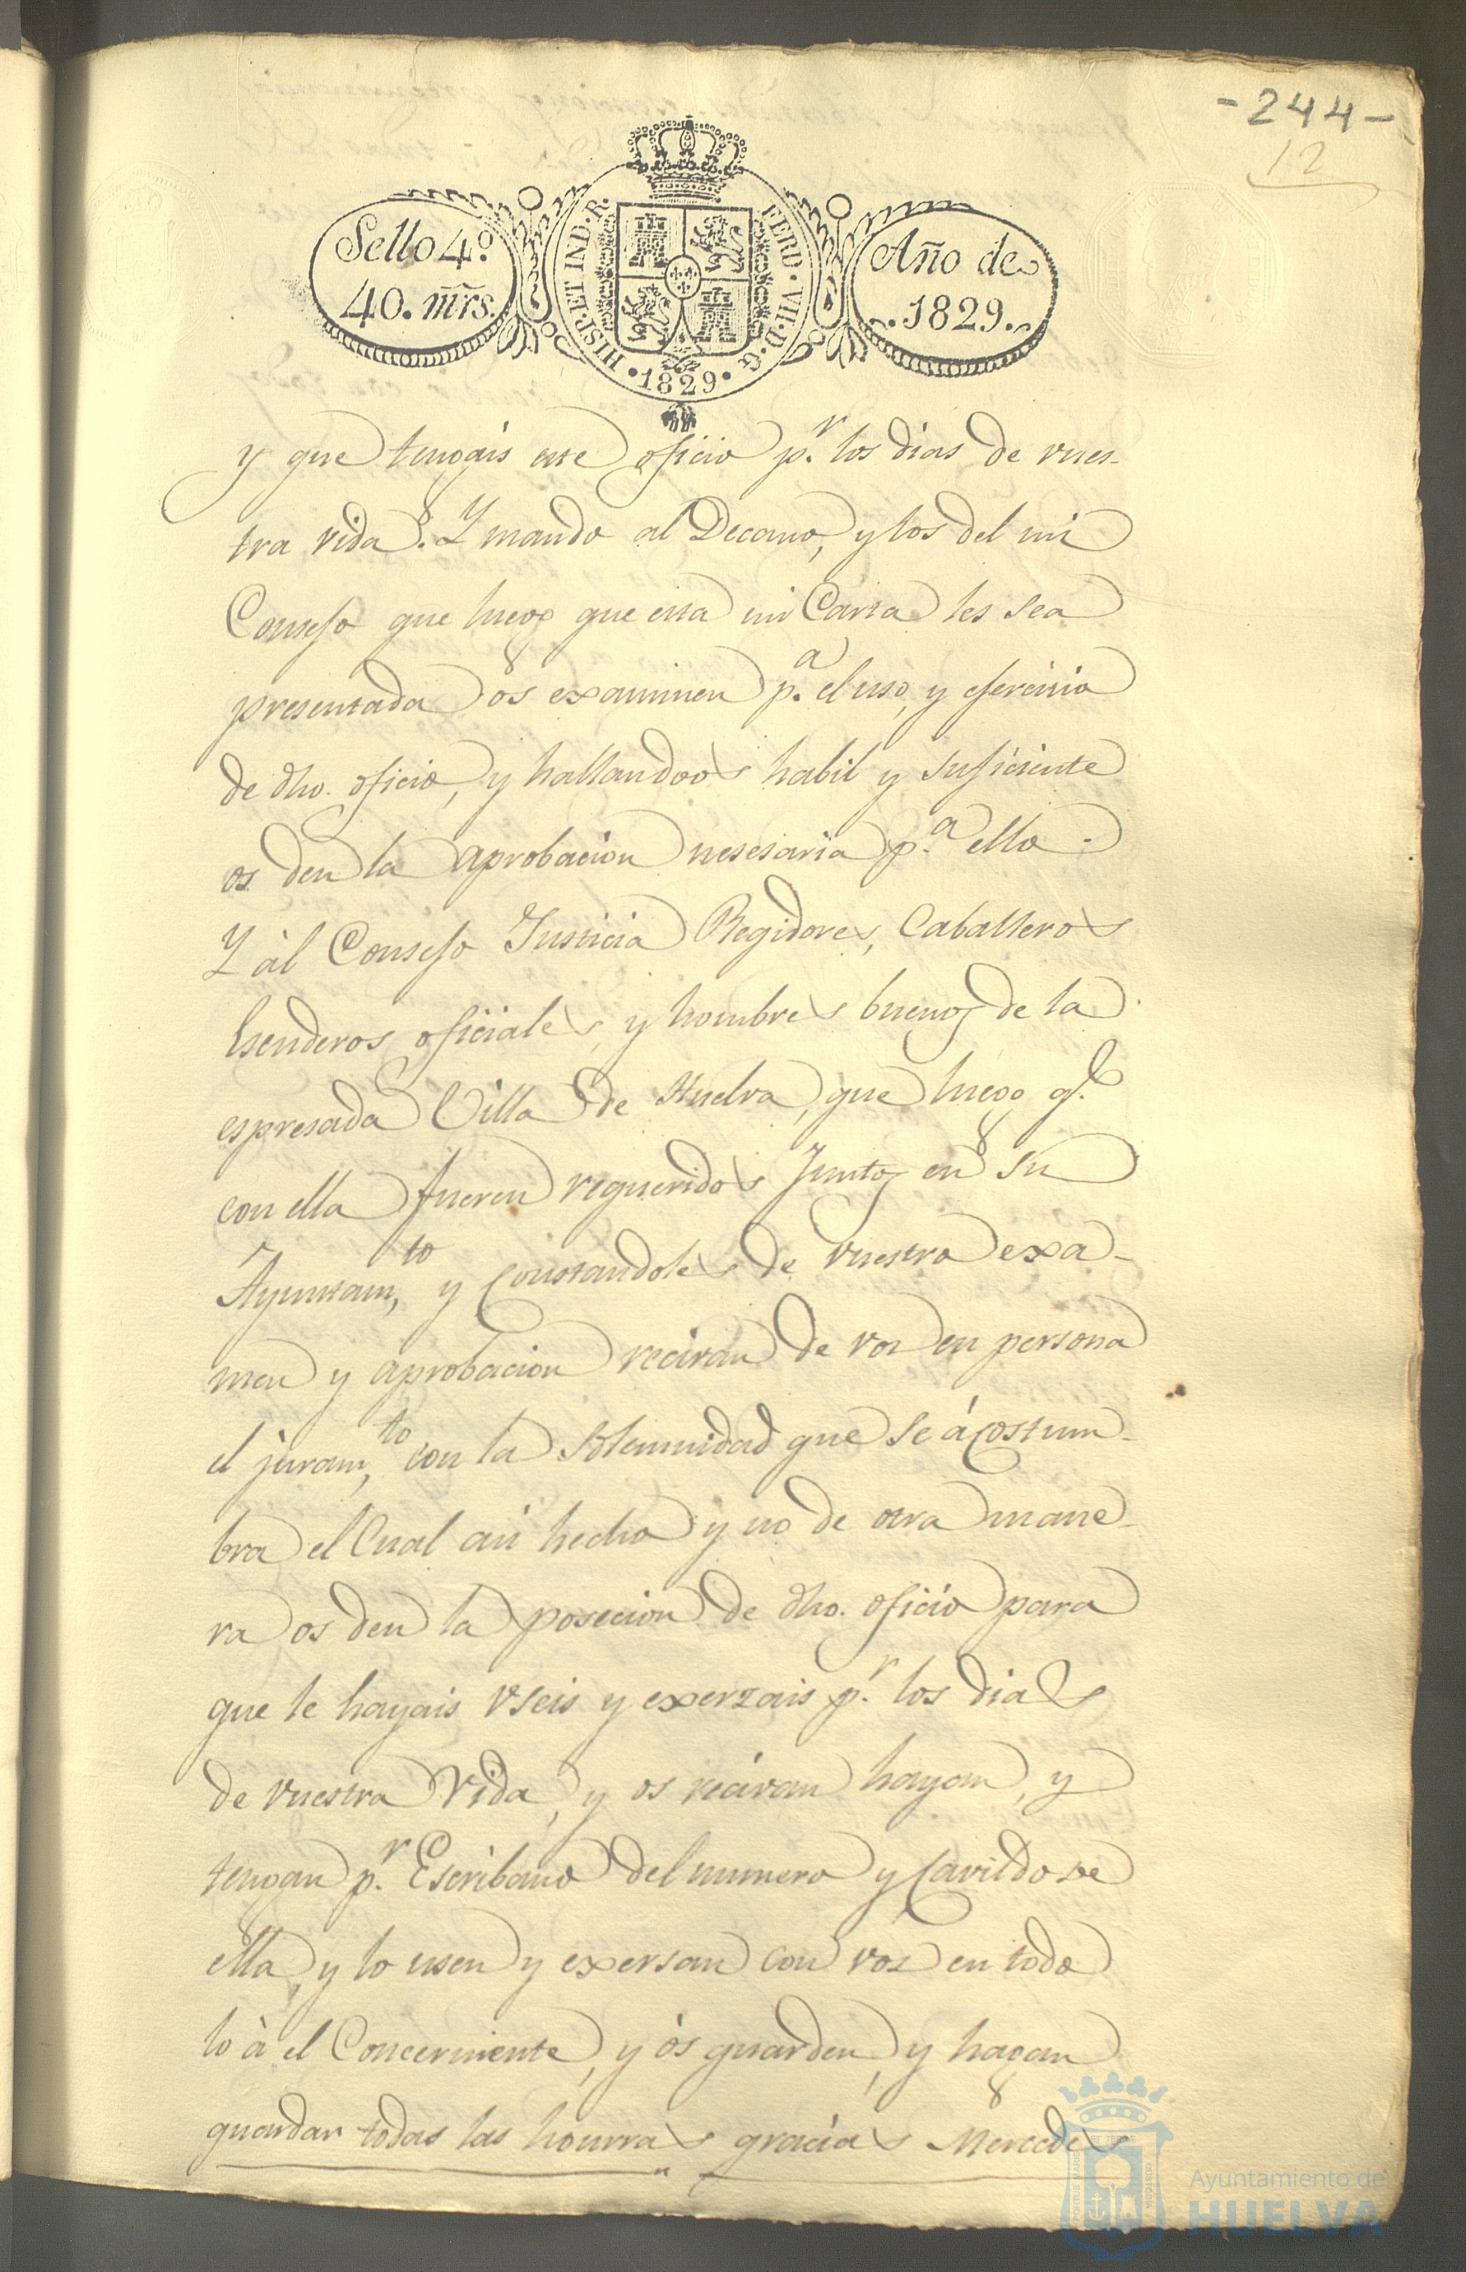 -244-
12
Sello 4º
40. mrs.
HISP. ET IND. R.
FERD. VII. D. G.
1829
Año de
1829.
y que tengais este oficio pr. los dias de vues-
tra vida. Y mando al Decano, y los del mi
Consejo que luego que esta mi Carta les sea
presentada os examinen pa. el uso, y ejercicio
de dho. oficio, y hallandoos habil y suficiente
os den la aprobacion nesesaria pa. ello.
Y àl Consejo Justicia Regidores, Caballeros
Esenderos oficiales, y hombres buenos de la
espresada Villa de Huelva, que luego q.e
con ella fueren requeridos Juntos en su
Ayuntam,to y Constandoles de vuestro exa-
men y aprobacion reciran de vos en persona
el juram,to con la Solemnidad que se ácostum-
bra el Cual asi hecho y no de otra mane-
ra os den la posecion de dho. oficio para
que le hayais useis y exerzais pr. los dias
de vuestra Vida, y os reciran hayan, y
tengan pr. Escribano del numero y Cavildo de
ella, y lo usen y exersan con vos en todo
lo à el Concerniente, y òs guarden, y hagan
guardar todas las honrras gracias Mercedes
Ayuntamiento de
HUELVA